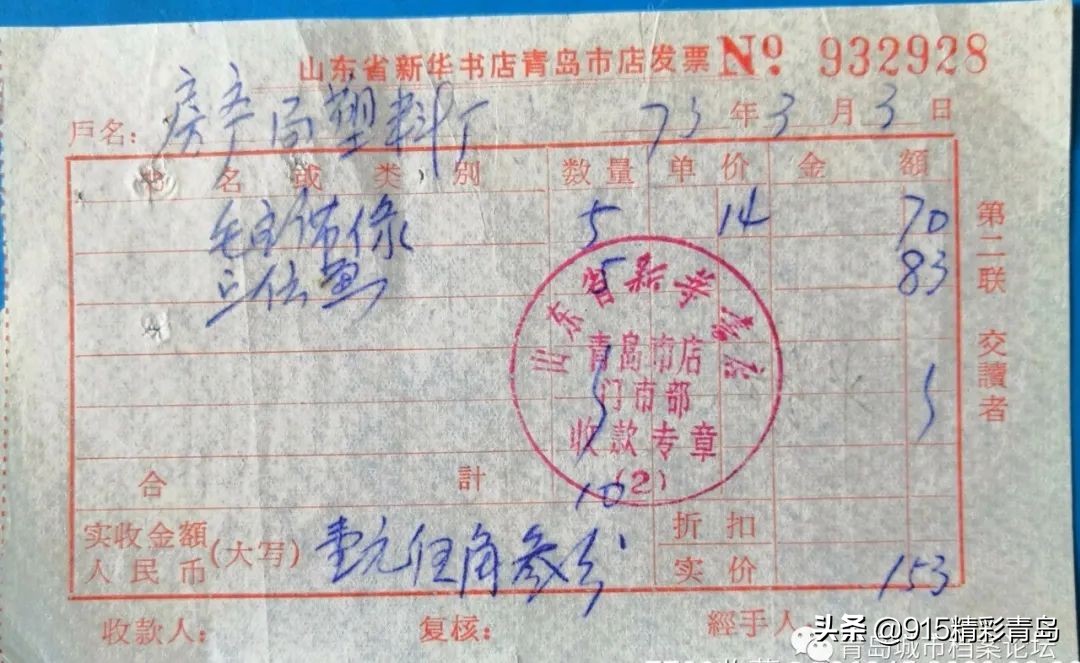 山东省新华书店青岛市店发票 No. 932928
戶名: 房产局塑料厂 73年3月3日
书名或类別 数量 单价 金額
毛主席像 5 14 70
5 83
合計 10
实收金額人民币(大写) 壹元伍角叁分 折扣
实价 153
收款人: 复核: 經手人
第二联 交讀者
山东省新华书店
青岛市店
门市部
收款专章
(2)
头条 @915精彩青岛
青岛城市档案论坛